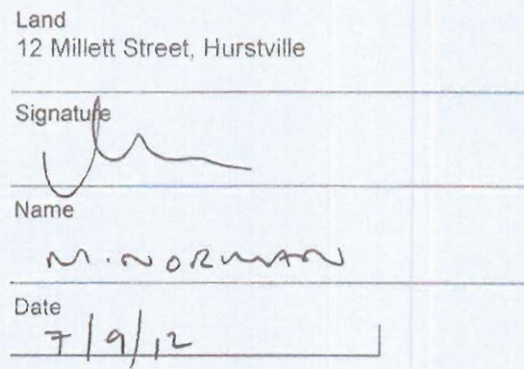 Land
12 Millett Street, Hurstville
Signature
Name
M. NORMAN
Date
7/9/12